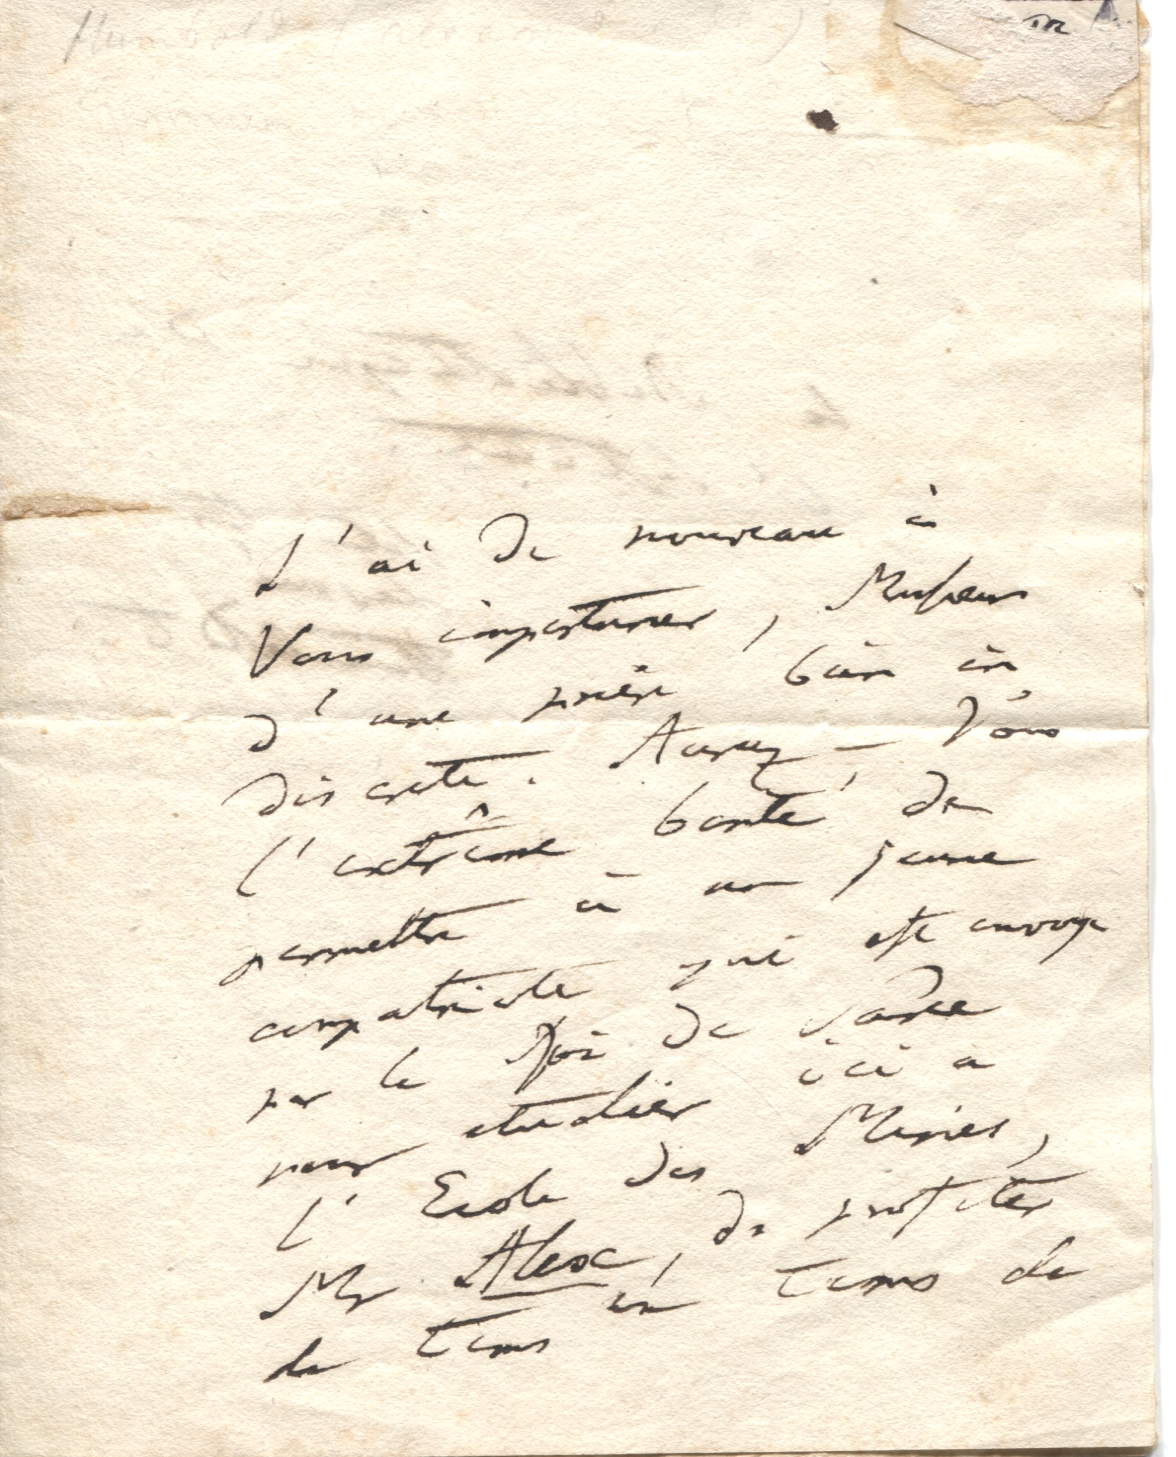 Humboldt
J'ai de nouveau à
Vous importuner, Monsieur
d'une prière bien in
discrète. Auriez-Vous
l'extrême bonté de
permettre à un jeune
compatriote qui est envoyé
par le Roi de
pour etudier ici a
l'Ecole des Mines,
Mr de profiter
de tems en tems de